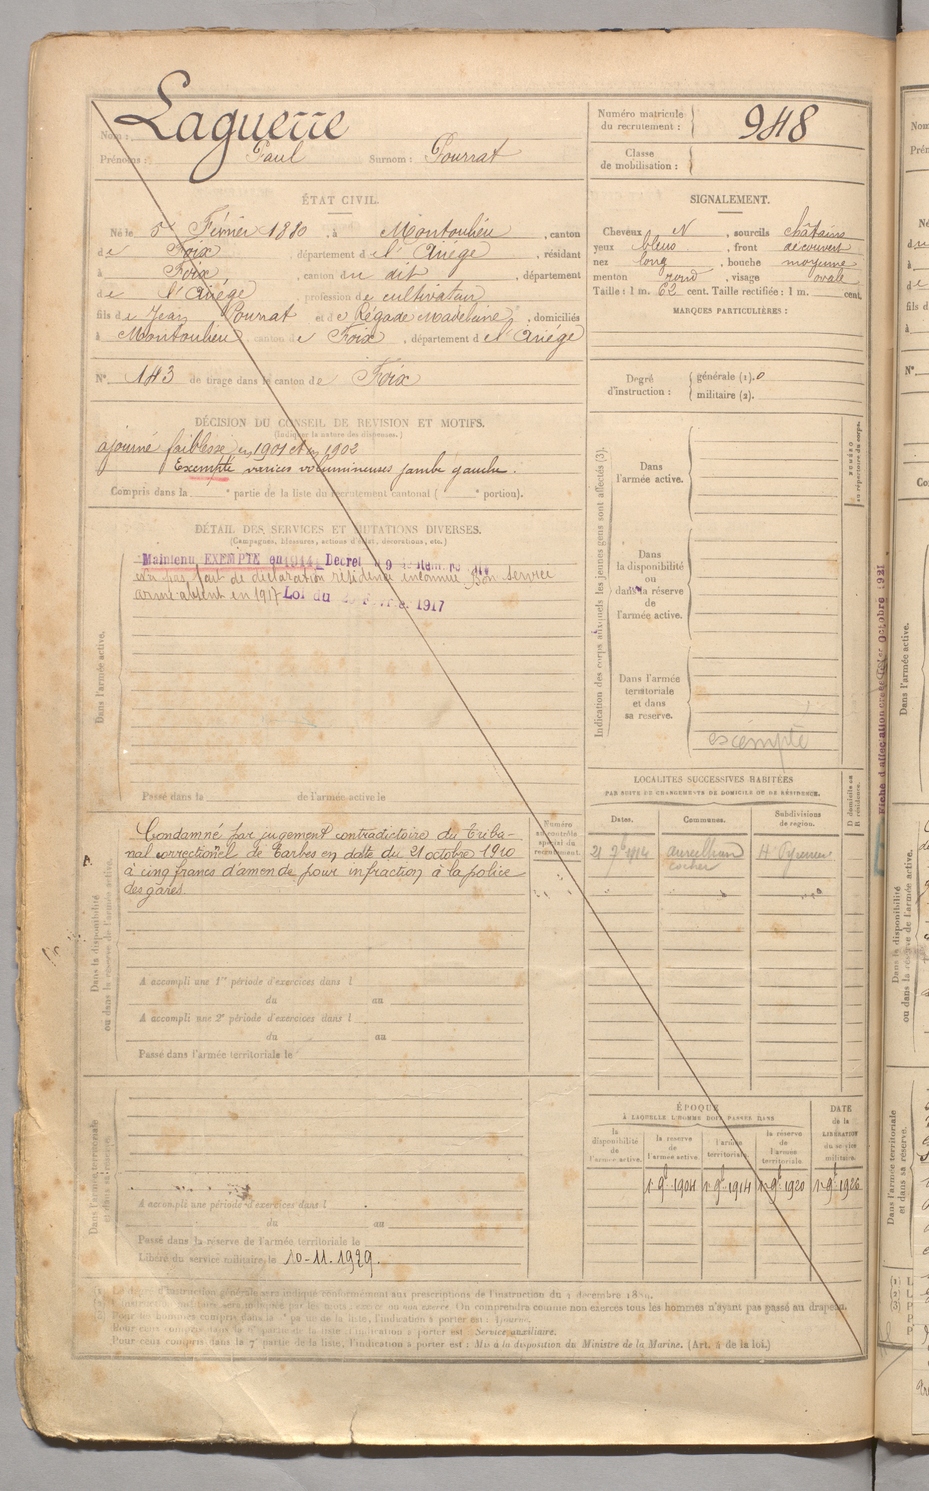 Nom : Laguerre
Prénoms : Paul Surnom : Pourrat
Numéro matricule
du recrutement : 948
Classe
de mobilisation :
ÉTAT CIVIL.
Né le 5 Février 1880, à Montoulieu, canton
de Foix, département de l'Ariège, résidant
à Foix, canton du dit, département
de l'Ariège, profession de cultivateur
fils de Jean Pourrat et de Régade Madelaine, domiciliés
à Montoulieu, canton de Foix, département de l'Ariège
N° 143 de tirage dans le canton de Foix
SIGNALEMENT.
Cheveux N, sourcils châtains
yeux bleus, front découvert
nez long, bouche moyenne
menton rond, visage ovale
Taille : 1 m. 62 cent. Taille rectifiée : 1 m. cent.
MARQUES PARTICULIÈRES :
Degré
d'instruction :
générale (1). 0
militaire (2).
DÉCISION DU CONSEIL DE REVISION ET MOTIFS.
(Indiquer la nature des dispenses.)
ajourné faiblesse en 1901 et en 1902
Exempté varices volumineuses jambe gauche.
Compris dans la e partie de la liste du recrutement cantonal ( e portion).
DÉTAIL DES SERVICES ET MUTATIONS DIVERSES.
(Campagnes, blessures, actions d'éclat, décorations, etc.)
Maintenu EXEMPTE en 1914 Décret 9
n'a pas fait de déclaration résidence inconnue Bon service
armé absent en 1917 Loi du 20 Février 1917
Dans l'armée active.
Passé dans la de l'armée active le
Condamné par jugement contradictoire du Tribu-
nal correctionel de Tarbes en date du 21 octobre 1910
à cinq francs d'amende pour infraction à la police
des gares.
Numéro
au contrôle
spécial du
recrutement.
Dans la disponibilité
ou dans la réserve de l'armée active.
A accompli une 1re période d'exercices dans l
du au
A accompli une 2e période d'exercices dans l
du au
Passé dans l'armée territoriale le
Dans l'armée territoriale
et dans sa réserve.
A accompli une période d'exercices dans l
du au
Passé dans la réserve de l'armée territoriale le
Libéré du service militaire le 10-11-1929.
Indication des corps auxquels les jeunes gens sont affectés (3).
NUMÉRO
au répertoire du corps.
Dans
l'armée active.
Dans
la disponibilité
ou
dans la réserve
de
l'armée active.
Dans l'armée
territoriale
et dans
sa réserve.
exempté
LOCALITÉS SUCCESSIVES HABITÉES
PAR SUITE DE CHANGEMENTS DE DOMICILE OU DE RÉSIDENCE.
D domicile ou
R résidence.
Dates. Communes. Subdivisions
de région.
21 7bre 1914 aureilhan Htes Pyrénées
cocher
ÉPOQUE
À LAQUELLE L'HOMME DOIT PASSER DANS
DATE
de la
LIBÉRATION
du service
militaire.
la
disponibilité
de
l'armée active.
la réserve
de
l'armée active.
l'armée
territoriale.
la réserve
de
l'armée
territoriale.
1er 9bre 1904 1er 9bre 1914 1er 9bre 1920 1er 9bre 1926
(1) Le degré d'instruction générale sera indiqué conformément aux prescriptions de l'instruction du 4 décembre 1889.
On comprendra comme non exercés tous les hommes n'ayant pas passé au drapeau.
Pour ceux compris dans la partie de la liste, l'indication à porter est : Service auxiliaire.
Pour ceux compris dans la 7e partie de la liste, l'indication à porter est : Mis à la disposition du Ministre de la Marine. (Art. 4 de la loi.)
Octobre 1921